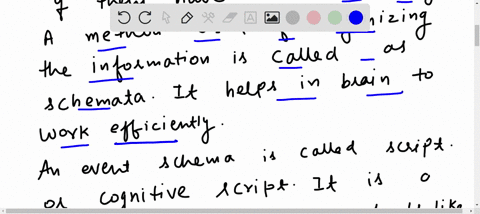 A method nizing
the information is called as
schemata. It helps in brain to
work efficiently.
An event schema is called script.
or cognitive script. It is a